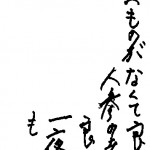 ものがなくて良
人参の
良
一夜
も